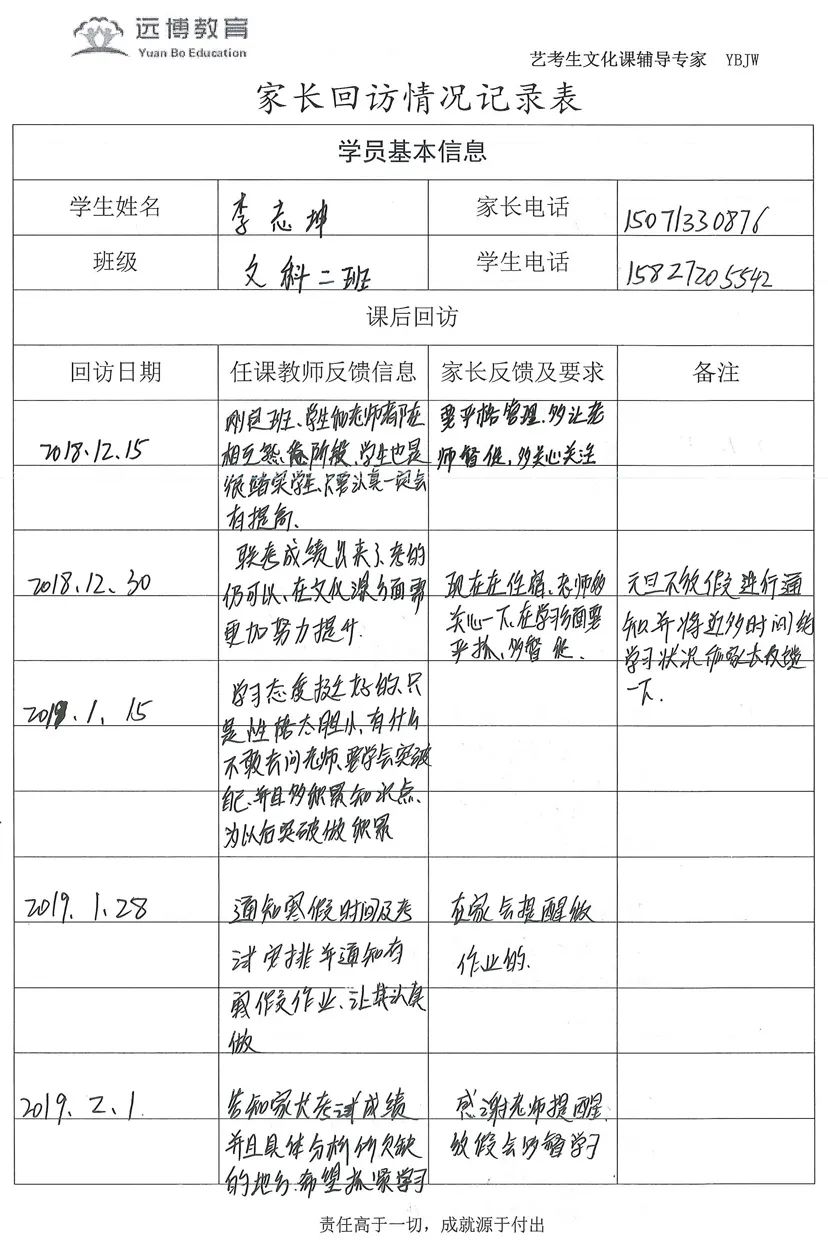 远博教育
Yuan Bo Education
艺考生文化课辅导专家 YBJW
家长回访情况记录表
学员基本信息
学生姓名 李志坤 家长电话 15071330876
班级 文科二班 学生电话 15827205542
课后回访
回访日期 任课教师反馈信息 家长反馈及要求 备注
2018.12.15
刚进班、学生和老师都在
相互熟悉阶段、学生也是
很踏实学生、只要认真一定会
有提高.
要严格管理.多让老
师督促,多关心关注
2018.12.30
联考成绩出来了、考的
仍可以、在文化课方面需
更加努力提升.
现在在住宿、老师多
关心一下、在学习方面要
严抓、多督促.
元旦不放假进行通
知并将近多时间的
学习状况和家长反馈
一下.
2019.1.15
学习态度挺好的、只
是性格太胆小、有什么
不敢去问老师、要学会突破
自己、并且多积累知识点、
为以后突破做积累
2019.1.28
通知寒假时间及考
试安排并通知有
寒假作业、让其认真
做
在家会提醒做
作业的.
2019.2.1
告知家长考试成绩
并且具体分析所欠缺
的地方.希望抓紧学习
感谢老师提醒
放假会多督学习
责任高于一切，成就源于付出